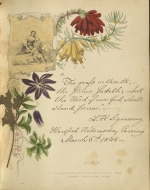 "The grass withereth,
the flower fadeth, but
the Word of our God shall
stand forever."
L. H. Sigourney
Hartford, Wednesday Evening
March 6th 1844.